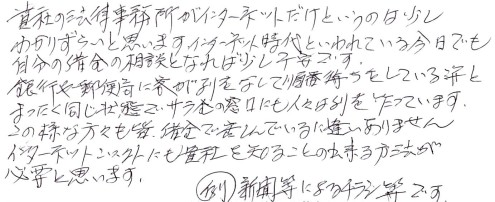 貴社の法律事務所がインターネットだけというのは少し
わかりずらいと思いますインターネット時代といわれている今日でも
自分の借金の相談となれば少し不安です。
銀行や郵便局に客が列をなして順番待ちをしている并と
まったく同じ状態でサラ金の窓口にも人々は列を作っています。
この様な方々も皆、借金で悩んでいるに違いありません
インターネットコンタクトにも貴社を知ることの出来る方法が
必要と思います。
例 新聞等によるチラシ等です。